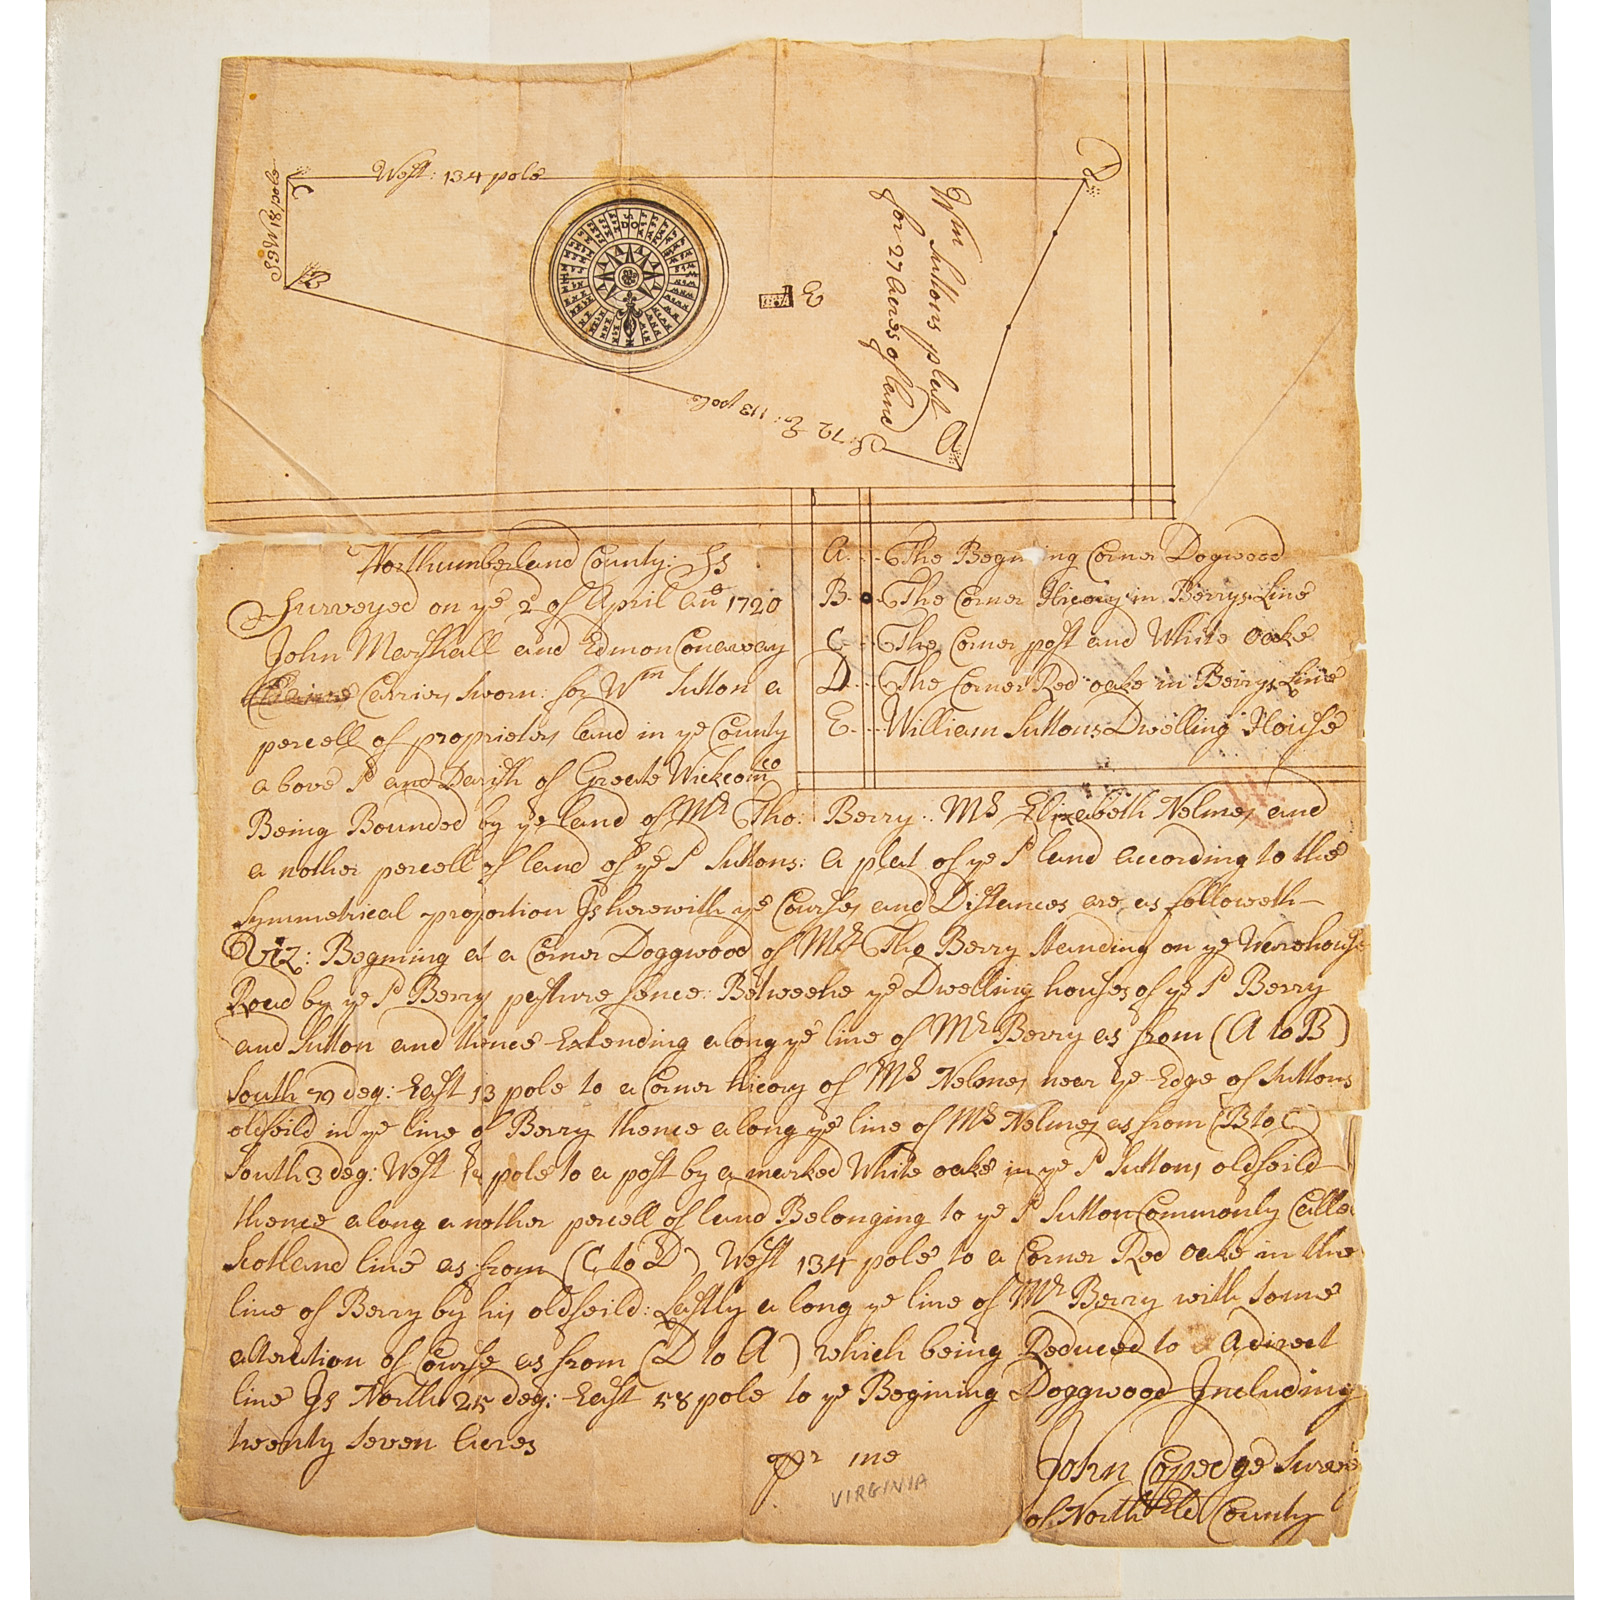 West: 134 pole
S 3 W 18 pole
C
B
D
A
E
Wm Suttons plat
for 27 Acres of land
S: 72 E: 113 pole
Northumberland County: Ss
Surveyed on ye 2d of April Ano 1720
John Marshall and Edmon Conaway
Carriers Sworn: for Wm Sutton a
percell of proprietors land in ye County
above sd and Parish of Greate Wickcomco
Being Bounded by ye land of Mr Tho: Berry: Ms Elizabeth Nelmes and
a nother percell of land of ye sd Suttons: A plat of ye sd land according to the
Symmetrical proportion Is herewith ye Courses and Distances are as followeth
Viz: Begining at a Corner Doggwood of Mr Tho Berry Standing on ye Warehouse
Road by ye sd Berry pasture fence: Betweene ye Dwelling houses of ye sd Berry
and Sutton and thence Extending along ye line of Mr Berry as from (A to B)
South 72 deg: East 113 pole to a Corner hicory of Ms Nelmes near ye Edge of Suttons
oldfeild in ye line of Berry thence along ye line of Ms Nelmes as from (B to C)
South 3 deg: West pole to a post by a marked White oake in ye sd Suttons oldfeild
thence along a nother percell of land Belonging to ye sd Sutton Commonly Called
Scotland line as from (C to D) West 134 pole to a Corner Red oake in the
line of Berry by his oldfeild: Lastly along ye line of Mr Berry with some
alteration of Course as from (D to A) which being Reduced to A direct
line Is North 25 deg: East 58 pole to ye Begining Doggwood Including
twenty seven Acres
pr me
John Coppedge Surve
of North:bld County
VIRGINIA
A The Begining Corner Dogwood
B The Corner Hicory in Berrys Line
C The Corner post and White oake
D The Corner Red oake in Berrys Line
E William Suttons Dwelling House